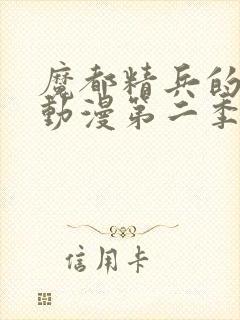 魔都精兵的
動漫第二季
信用卡